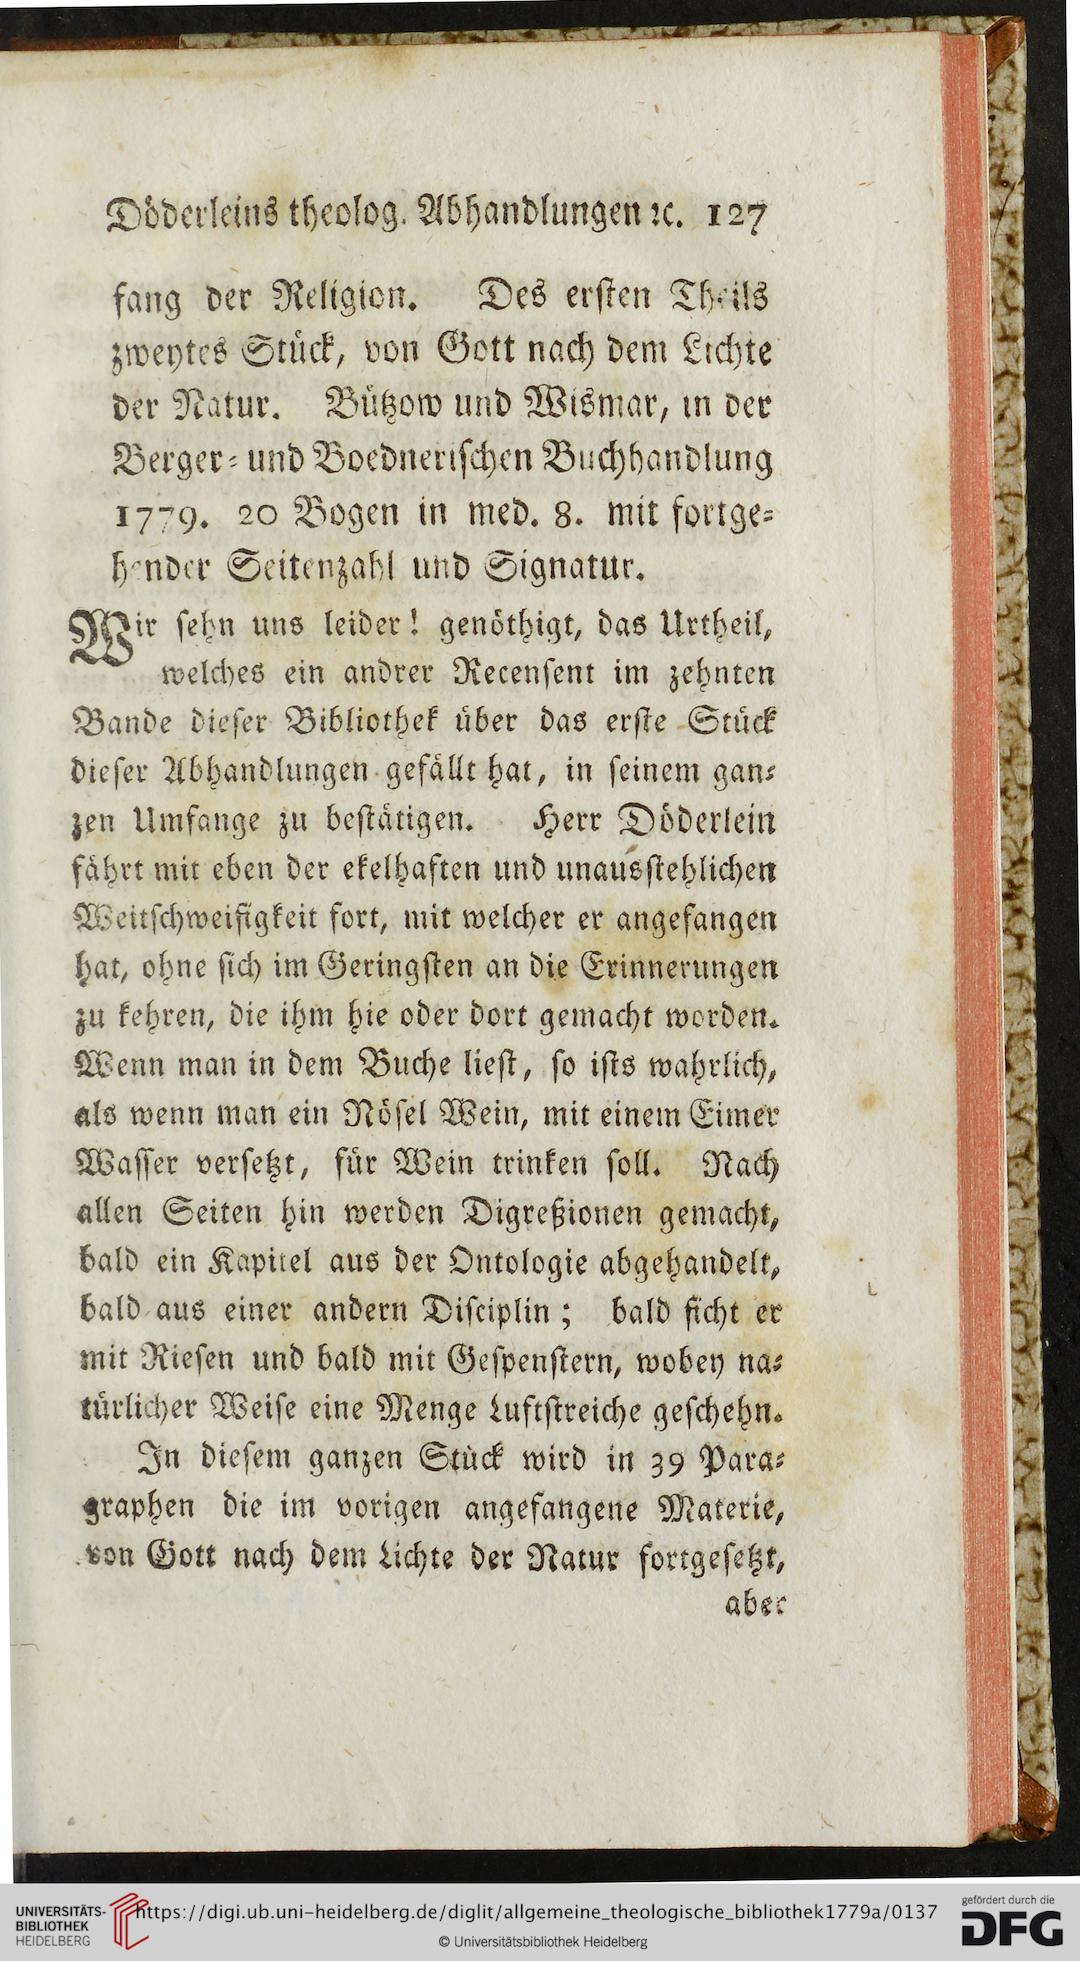 Döderleins theolog. Abhandlungen ꝛc. 127
fang der Religion. Des ersten Theils
zweytes Stück, von Gott nach dem Lichte
der Natur. Bützow und Wismar, in der
Berger- und Boednerischen Buchhandlung
1779. 20 Bogen in med. 8. mit fortge-
hender Seitenzahl und Signatur.
Wir sehn uns leider! genöthigt, das Urtheil,
welches ein andrer Recensent im zehnten
Bande dieser Bibliothek über das erste Stück
dieser Abhandlungen gefällt hat, in seinem gan-
zen Umfange zu bestätigen. Herr Döderlein
fährt mit eben der ekelhaften und unausstehlichen
Weitschweifigkeit fort, mit welcher er angefangen
hat, ohne sich im Geringsten an die Erinnerungen
zu kehren, die ihm hie oder dort gemacht worden.
Wenn man in dem Buche liest, so ists wahrlich,
als wenn man ein Nösel Wein, mit einem Eimer
Wasser versetzt, für Wein trinken soll. Nach
allen Seiten hin werden Digreßionen gemacht,
bald ein Kapitel aus der Ontologie abgehandelt,
bald aus einer andern Disciplin; bald ficht er
mit Riesen und bald mit Gespenstern, wobey na-
türlicher Weise eine Menge Luftstreiche geschehn.
In diesem ganzen Stück wird in 39 Para-
graphen die im vorigen angefangene Materie,
von Gott nach dem Lichte der Natur fortgesetzt,
aber
UNIVERSITÄTS-
BIBLIOTHEK
HEIDELBERG
https://digi.ub.uni-heidelberg.de/diglit/allgemeine_theologische_bibliothek1779a/0137
© Universitätsbibliothek Heidelberg
gefördert durch die
DFG